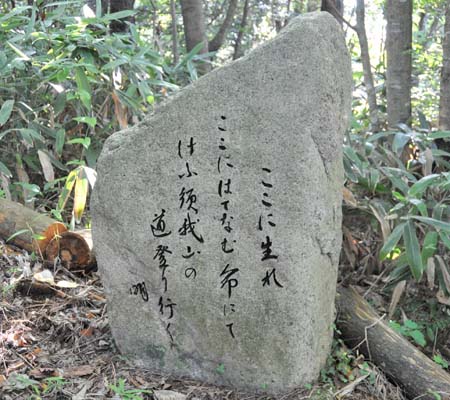 ここに生れ
ここにはてなむ命にて
けふ須我山の
道登り行く
明